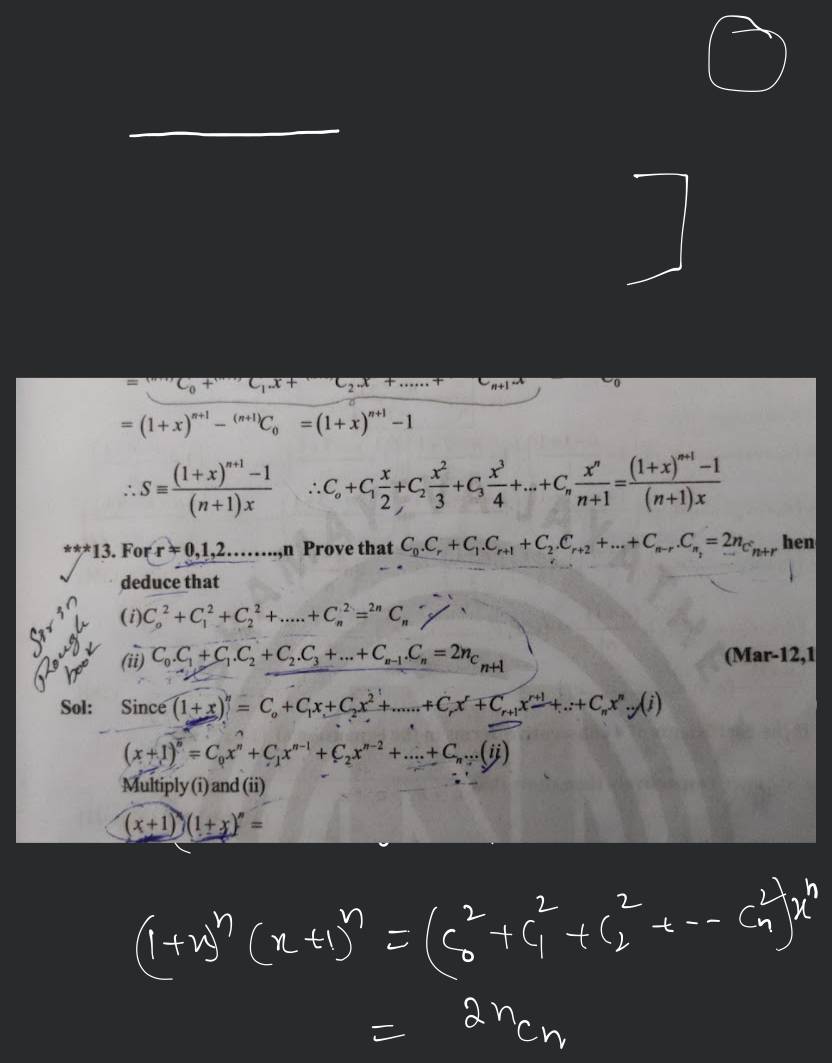 = C₀ + C₁.x + C₂.x + ...... + Cₙ₊₁.x C₀
= (1+x)ⁿ⁺¹ – ⁽ⁿ⁺¹⁾C₀ = (1+x)ⁿ⁺¹ – 1
∴S = ((1+x)ⁿ⁺¹ – 1)/((n+1)x) ∴C₀ + C₁ x/2 + C₂ x²/3 + C₃ x³/4 + ... + Cₙ xⁿ/(n+1) = ((1+x)ⁿ⁺¹ – 1)/((n+1)x)
***13. For r = 0,1,2........,n Prove that C₀.Cᵣ + C₁.Cᵣ₊₁ + C₂.Cᵣ₊₂ + ... + Cₙ₋ᵣ.Cₙ, = 2n_C_{n+r} hen
deduce that
(i) C₀² + C₁² + C₂² + ..... + Cₙ² = ²ⁿCₙ
(ii) C₀.C₁ + C₁.C₂ + C₂.C₃ + ... + Cₙ₋₁.Cₙ = 2n_C_{n+1} (Mar-12,1
Rough
book
Sol: Since (1+x)ⁿ = C₀ + C₁x + C₂x² + ...... + Cᵣxʳ + Cᵣ₊₁xʳ⁺¹ + ..: + Cₙxⁿ...(i)
(x+1)ⁿ = C₀xⁿ + C₁xⁿ⁻¹ + C₂xⁿ⁻² + .... + Cₙ...(ii)
Multiply (i) and (ii)
(x+1)ⁿ(1+x)ⁿ =
(1+x)ⁿ (x+1)ⁿ = (C₀² + C₁² + C₂² + --- Cₙ²)xⁿ
= 2n_C_n